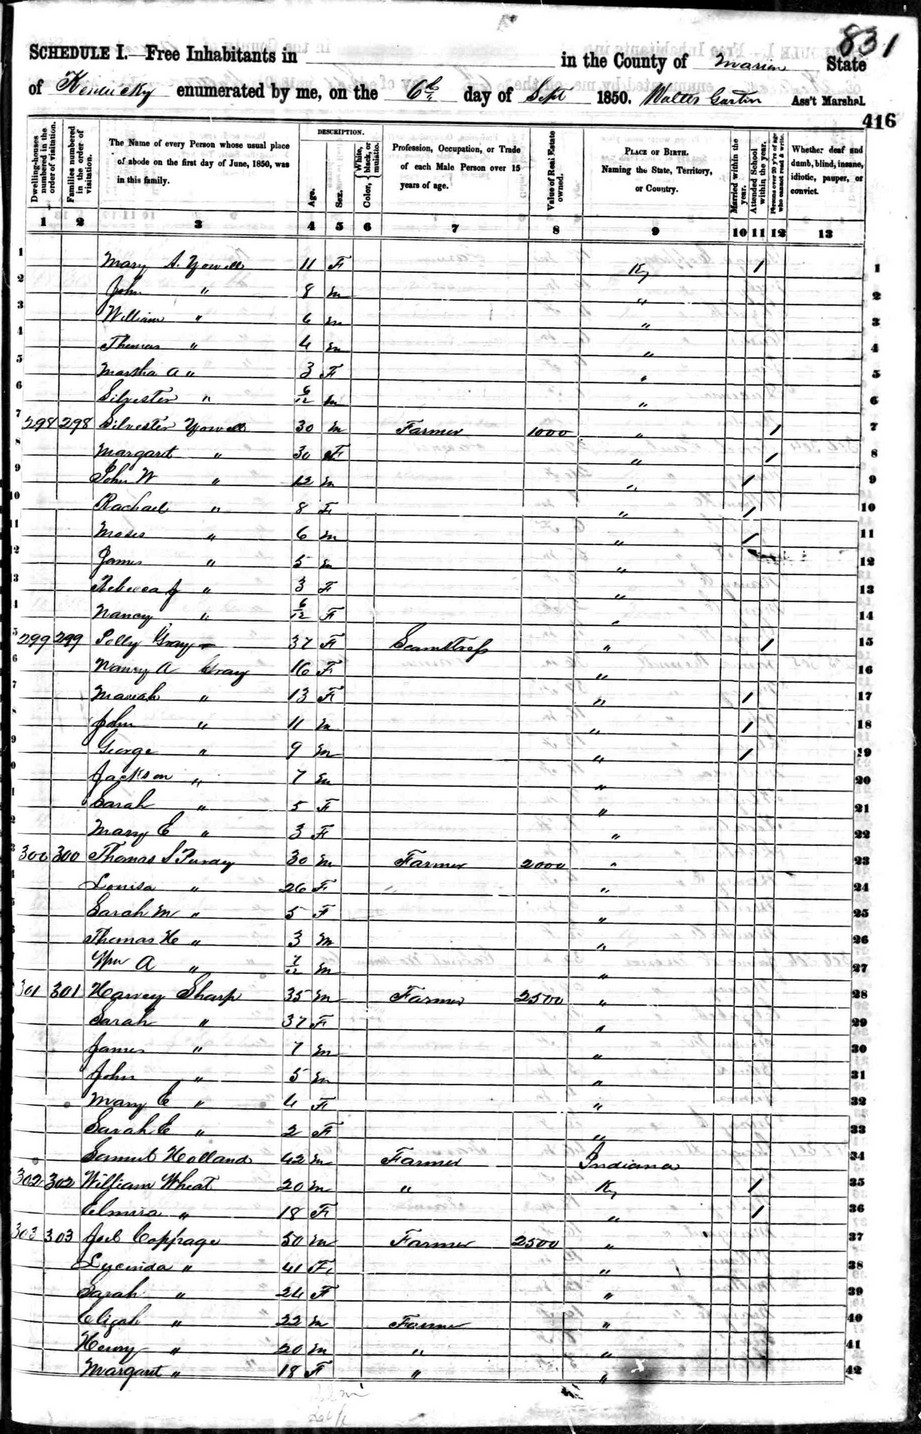 831
SCHEDULE I.—Free Inhabitants in in the County of Marion State
of Kentucky enumerated by me, on the 6th day of Sept 1850. Walter Gartin Ass't Marshal.
416
Dwelling-houses numbered in the order of visitation.
Families numbered in the order of visitation.
The Name of every Person whose usual place of abode on the first day of June, 1850, was in this family.
DESCRIPTION.
Age.
Sex.
Color, White, black, or mulatto.
Profession, Occupation, or Trade of each Male Person over 15 years of age.
Value of Real Estate owned.
PLACE OF BIRTH. Naming the State, Territory, or Country.
Married within the year.
Attended School within the year.
Persons over 20 y'rs of age who cannot read & write.
Whether deaf and dumb, blind, insane, idiotic, pauper, or convict.
1 2 3 4 5 6 7 8 9 10 11 12 13
1 Mary A. Yowell 11 F Ky / 1
2 John " 8 m " 2
3 William " 6 m " 3
4 Thomas " 4 m " 4
5 Martha A " 3 F " 5
6 Silvester " 6/12 m " 6
7 298 298 Silvester Yowell 30 m Farmer 1000 " / 7
8 Margaret " 30 F " / 8
9 John W " 12 m " / 9
10 Rachael " 8 F " / 10
11 Moses " 6 m " / 11
12 James " 5 m " 12
13 Rebecca J " 3 F " 13
14 Nancy " 6/12 F " 14
299 299 Polly Gray 37 F Seamstress " / 15
Nancy A Gray 16 F " 16
Mariah " 13 F " / 17
John " 11 m " / 18
George " 9 m " / 19
Jackson " 7 m " 20
Sarah " 5 F " 21
Mary E " 3 F " 22
300 300 Thomas S 30 m Farmer 2000 " 23
Louisa " 26 F " 24
Sarah M " 5 F " 25
Thomas H " 3 m " 26
Wm A " 7/12 m " 27
301 301 Harvey Sharp 35 m Farmer 2500 " 28
Sarah " 37 F " 29
James " 7 m " 30
John " 5 m " 31
Mary E " 4 F " 32
Sarah E " 2 F " 33
Samuel Holland 42 m Farmer Indiana 34
302 302 William Wheat 20 m " Ky / 35
Elmira " 18 F " / 36
303 303 Joel Coppage 50 m Farmer 2500 " 37
Lucinda " 41 F " 38
Sarah " 24 F " 39
Elijah " 22 m Farmer " 40
Henry " 20 m " " 41
Margaret " 18 F " " 42